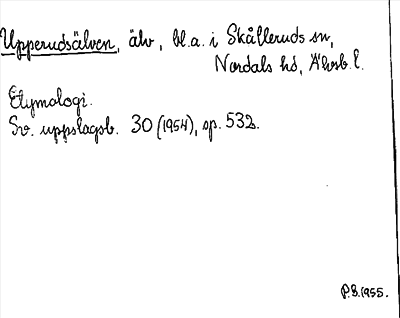 Upperudsälven, älv, bl.a. i Skålleruds sn,
Nordals hd, Älvsb. l.
Etymologi.
Sv. uppslagsb. 30 (1954), sp. 532.
P.S. 1955.